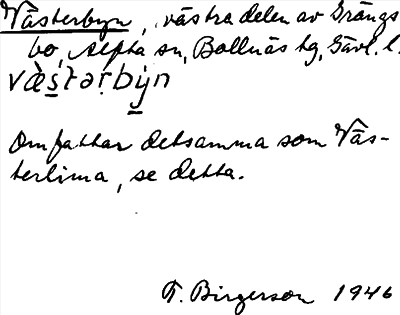 Västerbyn, västra delen av Grängs
bo, Alfta sn, Bollnäs tg, Gävl. l.
væ̀stərbẏn
Omfattar detsamma som Väs-
terlima, se detta.
T. Birgerson 1946